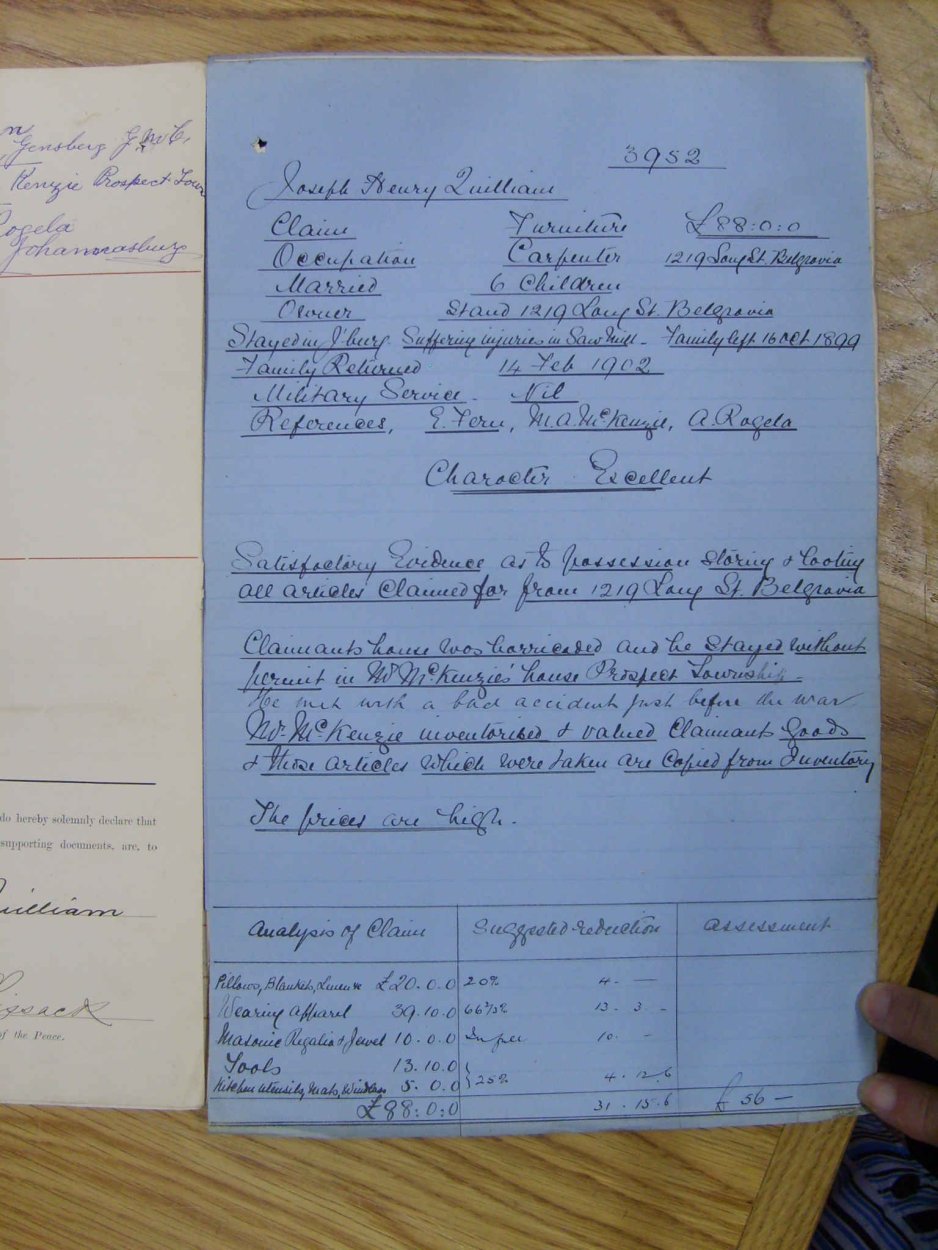 Gensberg J.W.C.
Kenzie Prospect Town
Rogela
Johannesburg
do hereby solemnly declare that
supporting documents, are, to
illiam
of the Peace.
3952
Joseph Henry Quilliam
Claim Furniture £88:0:0
Occupation Carpenter 1219 Long St. Belgravia
Married 6 Children
Owner Stand 1219 Long St. Belgravia
Stayed in J'burg. Suffering injuries in Saw Mill - Family left 16 Oct 1899
Family Returned 14 Feb 1902
Military Service - Nil
References, E. Fern, M.A. McKenzie, A. Rogela
Character Excellent
Satisfactory Evidence as to possession storing & looting
all articles Claimed for from 1219 Long St. Belgravia
Claimants house was barricaded and he stayed without
permit in Mr McKenzie's house Prospect Township -
He met with a bad accident just before the war
Mr. McKenzie inventorised & valued Claimants Goods
& those articles which were taken are Copied from Inventory
The prices are high.
Analysis of Claim Suggested reduction assessment
Pillows, Blankets, Linen &c £20.0.0 20% 4. —
Wearing apparel 39.10.0 66⅔% 13 - 3 -
Masonic Regalia & Jewel 10.0.0 In full 10. -
Tools 13.10.0
Kitchen utensils, Mats, Windlass 5.0.0 } 25% 4.12.6
£88:0:0 31.15.6 £56 —